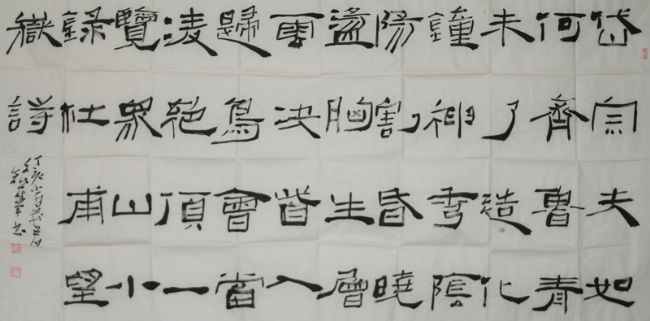 岱宗夫如
何齊魯青
未了造化
鐘神秀陰
陽割昏曉
盪胸生層
雲決眥入
歸鳥會當
凌絕頂一
覽眾山小
錄杜甫望
嶽詩
丁亥